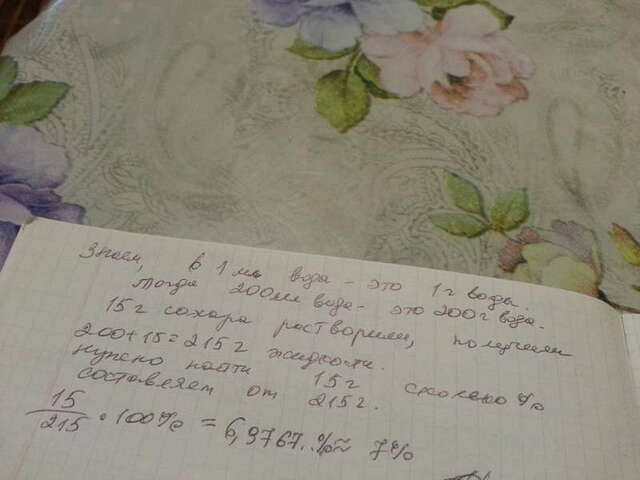 Знаем, в 1 мл вода - это 1 г воды.
тогда 200 мл вода - это 200 г вода.
15 г сахара растворили, получили
200+15=215 г жидкости.
нужно найти 15 г сколько %
составляет от 215 г.
15/215 · 100% = 6,9767..% ≈ 7%